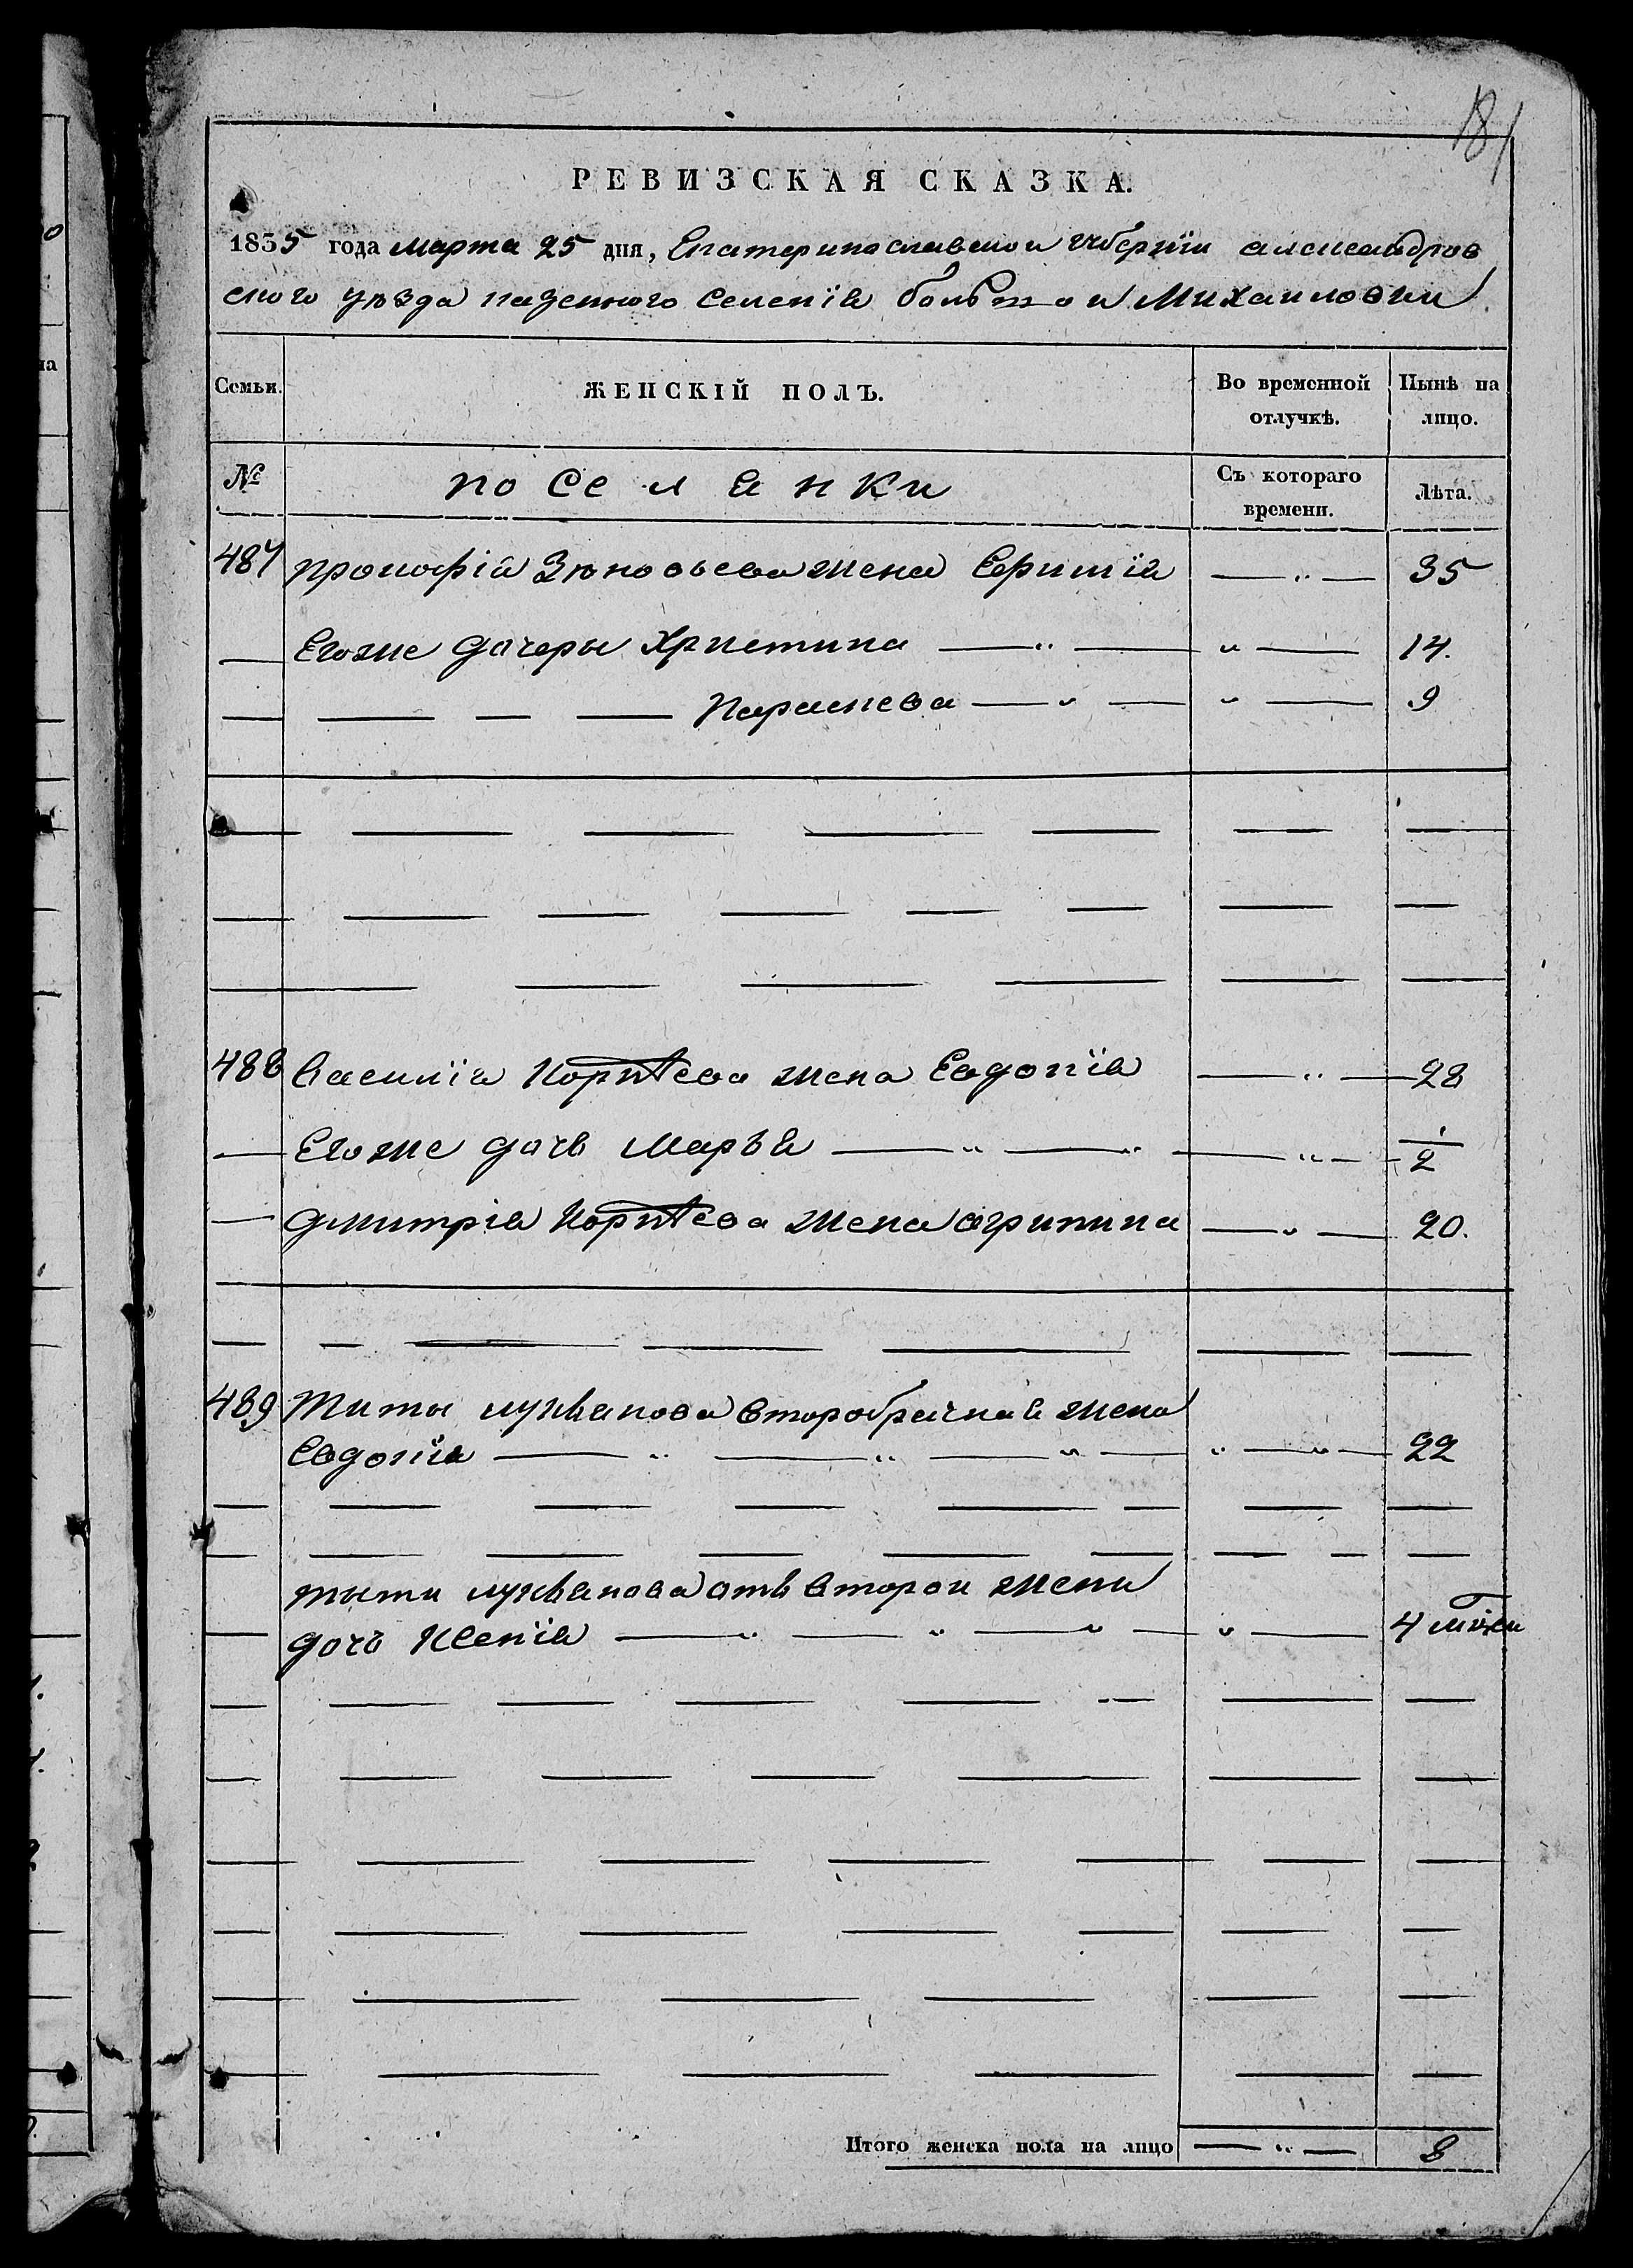 181
РЕВИЗСКАЯ СКАЗКА.
1835 года марта 25 дня, Екатеринославской губернїи александров
ского уѣзда казенного селенїя большой Михайловки
Семьи.
ЖЕНСКІЙ ПОЛЪ.
Во временной отлучкѣ.
Нынѣ на лицо.
№
поселянки
Съ котораго времени.
Лѣта.
487 прокофія Зѣновьева жена Ефимїя — " — 35
Егоже дочеры Христина — " — " — 14.
Параскева — " — " — 9
488 василїя жена Евдокїя — " — 28
Егоже дочь Марья — " — " — " — 1/2
дмитрія жена агрипина — " — 20.
489 Титы лукьянова второбрачная жена
Евдокїя — " — " — " — " — " — 22
тыти лукьянова отъ второй жени
дочь Ксенїя — " — " — " — " — 4
Итого женска пола на лицо — " — 8